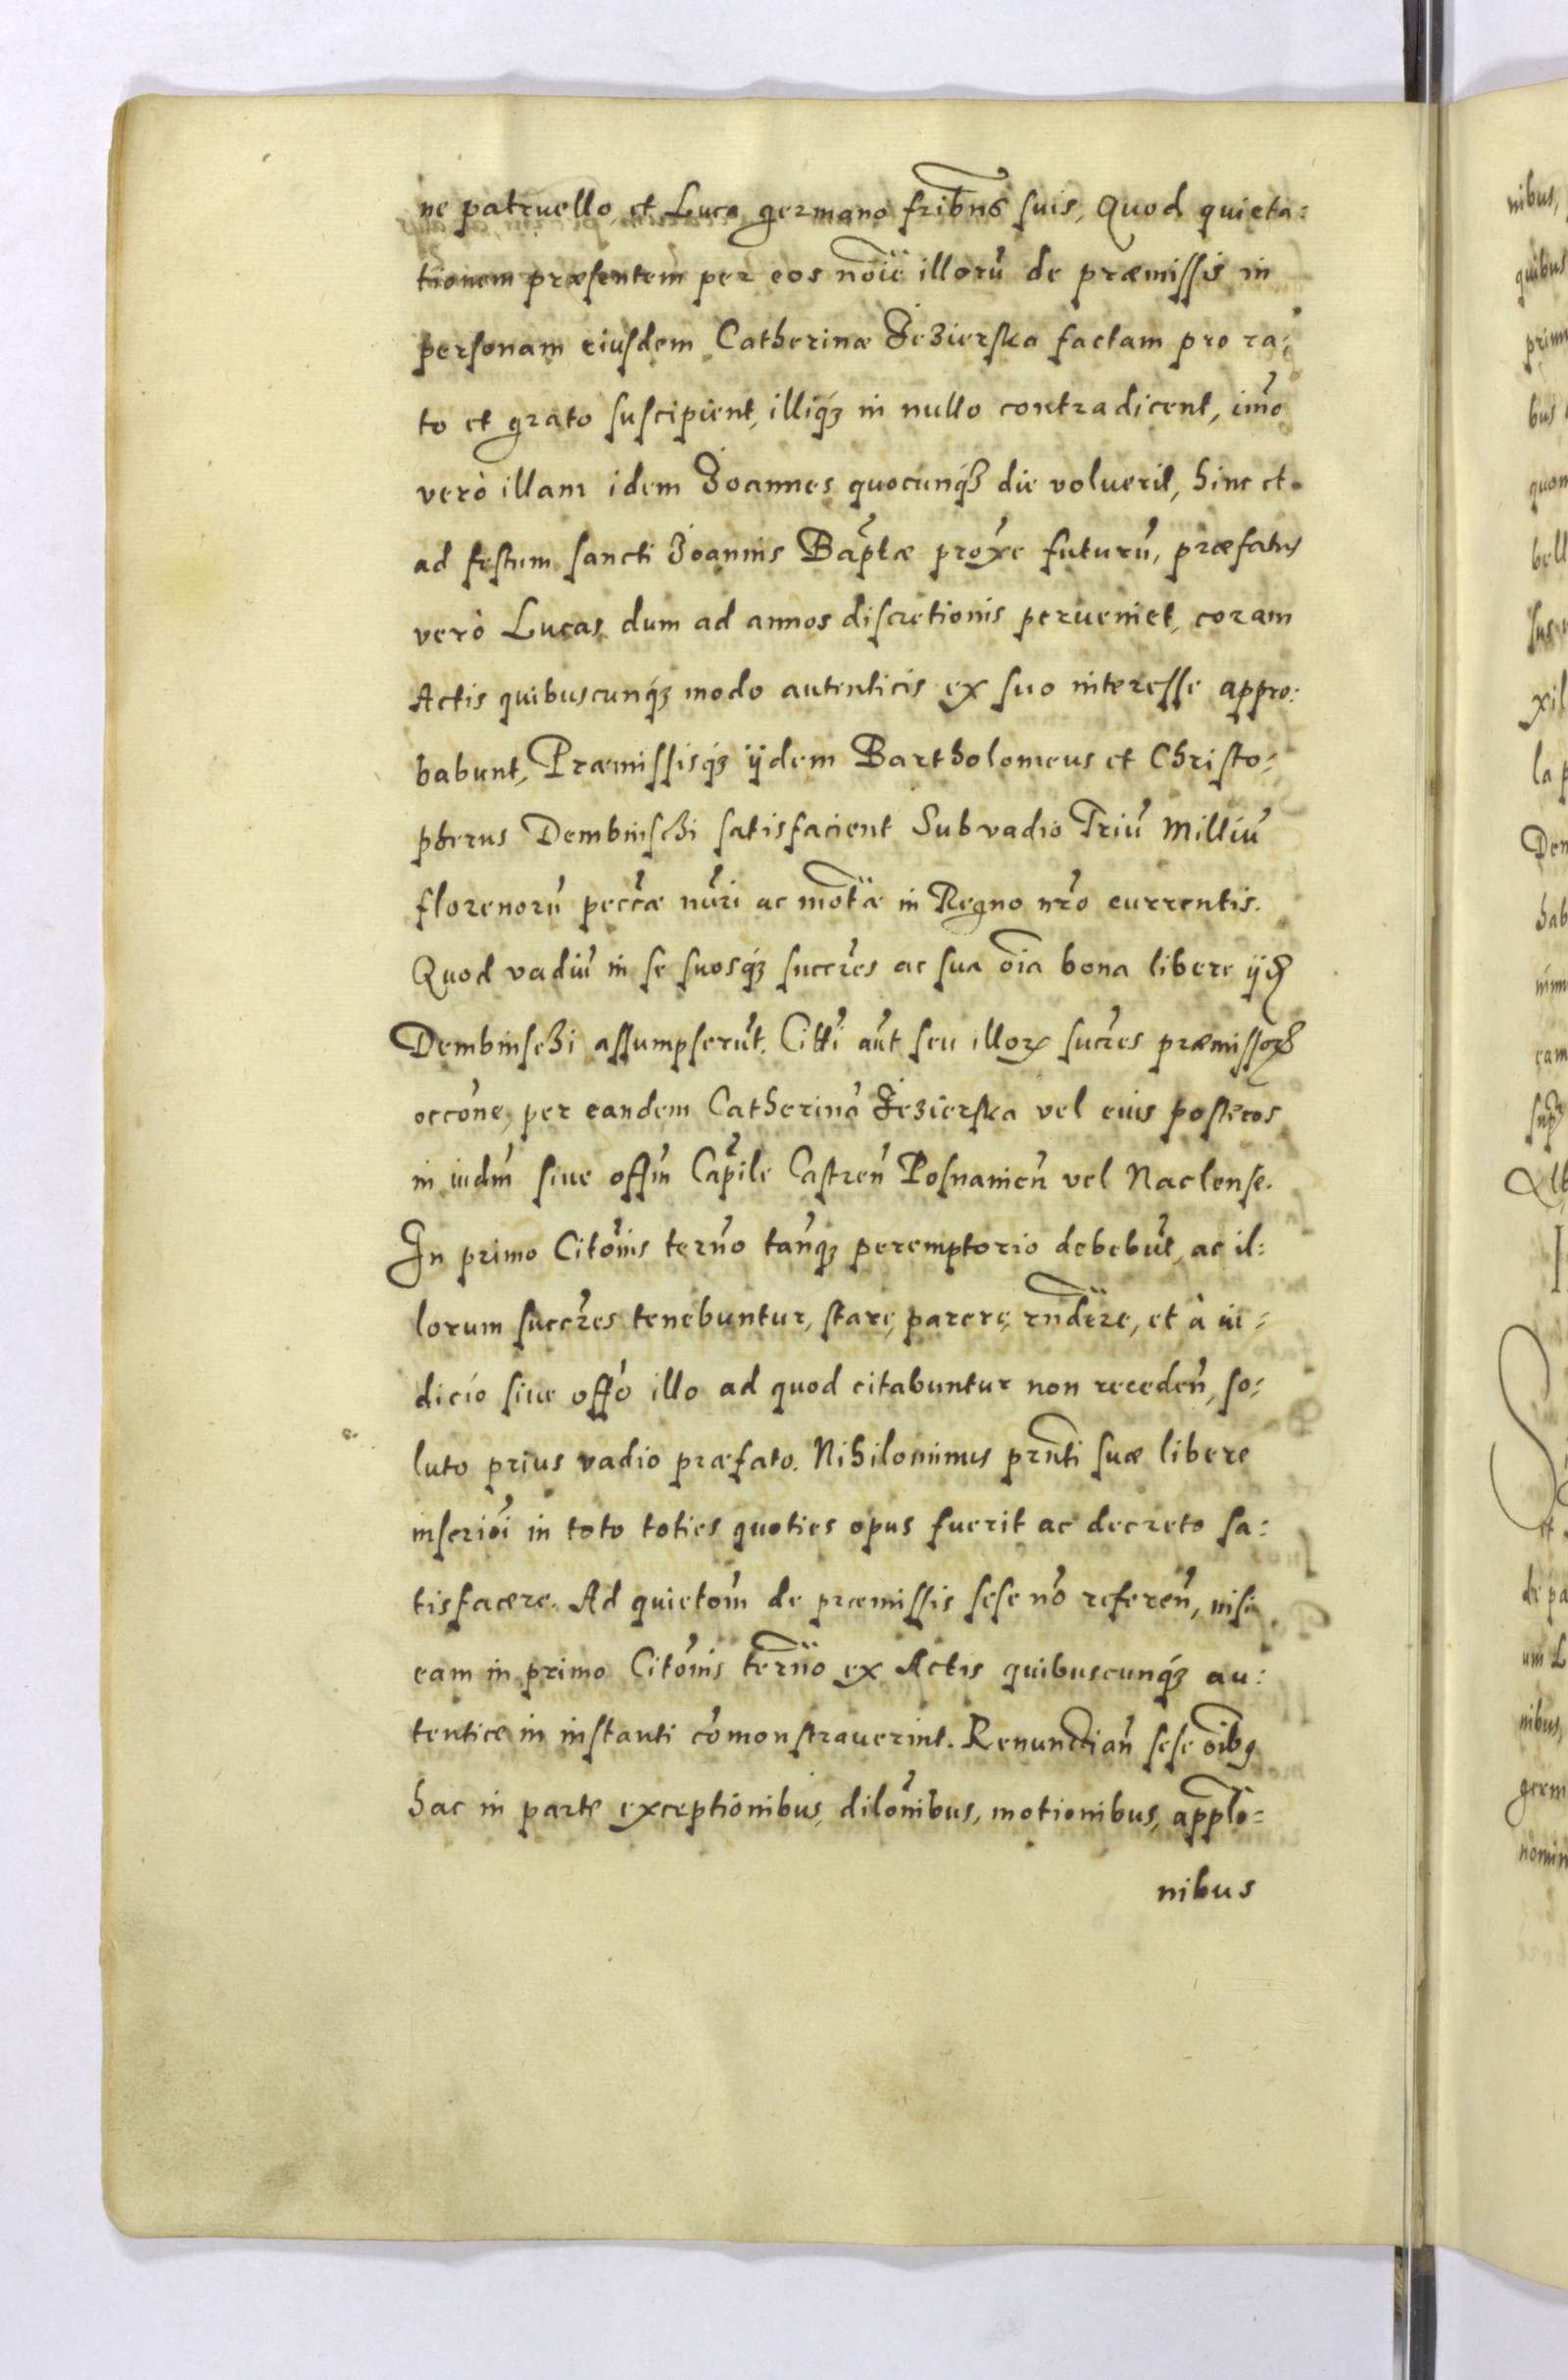 ne patruello, et Luca germano fribus suis, Quod quieta:
tionem præsentem per eos noie illoru de præmissis in
personam eiusdem Catherinæ Jezierska factam pro ra:
to et grato suscipient, illiq3 in nullo contradicent, imo
verò illam idem Joannes quocunq3 die voluerit, hinc et
ad festum sancti Joannis Baptæ proxe futuru, præfatus
verò Lucas dum ad annos discretionis perueniet, coram
Actis quibuscunq3 modo autenticis ex suo interesse appro:
babunt, Præmissisq3 ijdem Bartholomeus et Christo:
pherus Dembinschi satisfacient Sub vadio Triu Milliu
florenoru peccæ nuri ac motæ in Regno nro currentis.
Quod vadiu in se suosq3 succres ac sua oia bona libere ijd
Dembinschi assumpserut. Citti aut seu illor sucres præmissor
occone, per eandem Catherina Jezierska vel eius posteros
in iudm siue offm Capile Castren Posnanien vel Naclense.
In primo Citonis terno tanq3 peremptorio debebut, ac il:
lorum succres tenebuntur, stare, parere, rndere, et à iu:
dicio siue offo illo ad quod citabuntur non receden, so:
luto prius vadio præfato. Nihilominus prnti suæ libere
inscrioi in toto toties quoties opus fuerit ac decreto sa:
tisfacere. Ad quietom de præmissis sese no referen, nisi
eam in primo Citonis terno ex Actis quibuscunq3 au:
tentice in instanti comonstrauerint. Renunctian sese oibg
hac in parte exceptionibus, dilonibus, motionibus, applo:
nibus